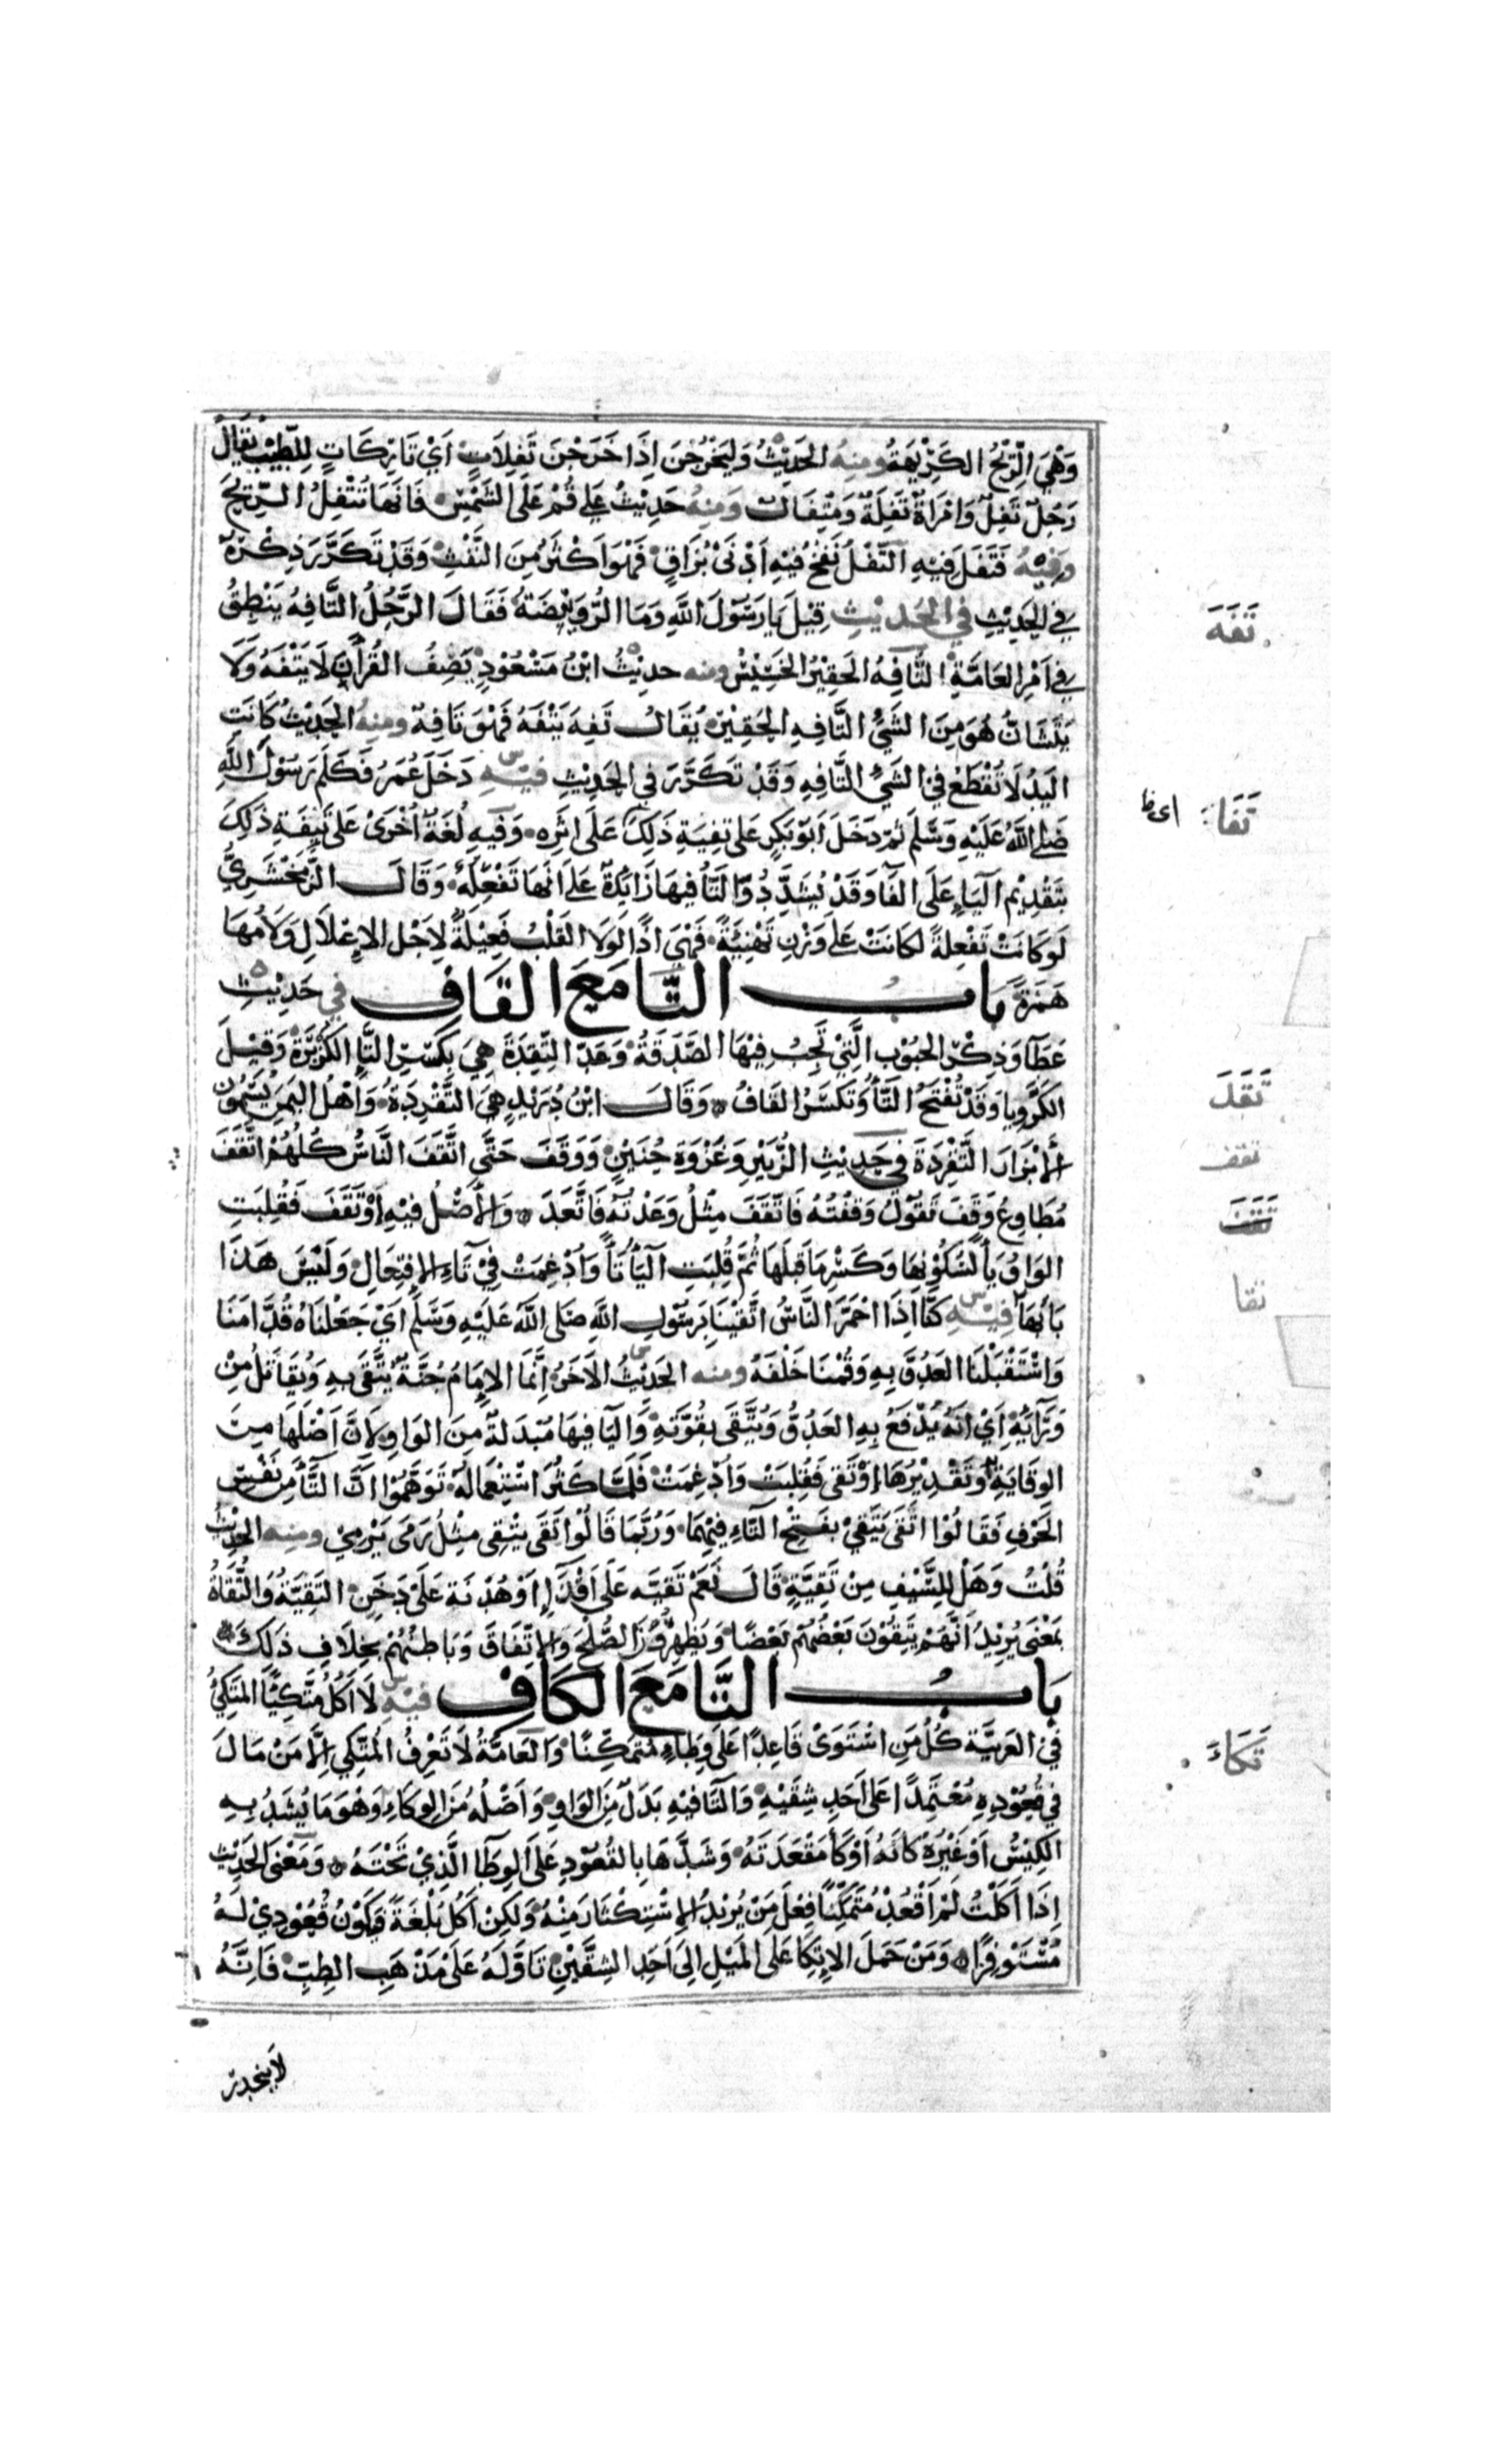 وَهِيَ الرِّيْحُ الكَرِيْهَةُ ومِنهُ الحَدِيْثُ وَليَخْرُجْنَ اِذَا خَرَجْنَ تَفِلَاتٍ اَيْ تَارِكَاتٍ لِلطِّيْبِ يُقَالُ
رَجُلٌ تَفِلٌ وَامْرَاةٌ تَفِلَةٌ وَمِتْفَالٌ وَمِنهُ حَدِيْثُ عَلِي قُمْ عَلَى الشَّمْسِ فَاِنَّهَا تُتْفِلُ الرِّيْحَ
وَفِيْهِ فَتَفَلَ فِيْهِ اَلتَّفْلُ نَفْخٌ فِيْهِ اَدْنَى بُزَاقٍ فَهُوَ اَكْثَرُ مِنَ النَّفْثِ وَقَدْ تَكَرَّرَ ذِكْرُهُ
فِي الحَدِيْثِ في الحَدِيْثِ قِيْلَ يَا رَسُوْلَ اللهِ وَمَا الرُّوَيْبِضَةُ فَقَالَ الرَّجُلُ التَّافِهُ يَنْطِقُ
فِي اَمْرِ العَامَّةِ التَّافِهُ الحَقِيْرُ الخَسِيْسُ ومنه حديْثُ ابْنُ مَسْعُوْدٍ يَصِفُ القُرْآنَ لَا يَتْفَهُ وَلَا
يَتَشَانُّ هُوَ مِنَ الشَّيْءِ التَّافِهِ الحَقِيْرِ يُقَالُ تَفِهَ يَتْفَهُ فَهْوَ تَافِهٌ ومِنهُ الحَدِيْثُ كَانَتِ
اليَدُ لَا تُقْطَعُ في الشَيْءِ التَّافِهِ وَقَدْ تَكَرَّرَ في الحَدِيْثِ فيْهِ دَخَلَ عُمَرُ فَكَلَّمَ رَسُوْلَ اللهِ
صَلى اللهُ عَلَيْهِ وَسَلَّمَ ثُمَّ دَخَلَ اَبُوْ بَكْرٍ عَلَى تَفِيَةِ ذَلِكَ عَلَى اَثَرِهِ وَفِيهِ لُغَةٌ اُخْرَى عَلَى تَئِيفَةِ ذٰلِكَ
بِتَقْدِيْمِ اليَاءِ عَلَى الفَا وَقَدْ يُشَدَّدُ وَالتَّا فِيهَا زَايِدَةٌ عَلَى اَنَّهَا تَفْعِلَةٌ وَقَالَ الزَّمَخْشَرِيُّ
لَو كَانَتْ تَفْعِلةً لكَانَتْ عَلَى وَزْنِ تَهْنِئَةٍ فَهْيَ اِذًا لَولَا القَلْبُ فَعِيْلَةٌ لِاَجْلِ الاِعْلَالِ وَلَامُهَا
هَمْزَةٌ بَابُ التَّا مَعَ القَافِ في حَدِيْثِ
عَطَا وَذِكْرُ الحُبُوْبِ الَّتِيْ تَجِبُ فِيْهَا الصَّدَقَةُ وَعَدَّ التِّقِدَةَ هِيَ بِكَسْرِ التَّا الكُزْبَرَةُ وَقِيْلَ
الكَرَوِيَا وَقَدْ تُفْتَحُ التَّا وَتُكْسَرُ القَافُ وَقَالَ ابْنُ دُرَيْدٍ هِيَ التَّقْرِدَةُ وَاَهْلُ اليَمَنِ يُسَمُّوْنَ
الأَبْزَارَ التَّقْرِدَةَ فِي حَدِيْثِ الزُّبَيْرِ وَغَزْوَةِ حُنَيْنٍ وَوَقَفَ حَتَّى اتَّقَفَ النَّاسُ كُلُهُمْ اتَّقَفَ
مُطَاوِعُ وَقَفَ تَقُوْلُ وَقَفْتُهُ فَاتَّقَفَ مِثْلُ وَعَدْتُهُ فَاتَّعَدَ وَالاَصْلُ فِيْهِ اِوْتَقَفَ فَقُلِبَتِ
الوَاوُ يَاً لِسُكُوْنِهَا وَكَسْرِ مَا قَبْلَهَا ثُمَّ قُلِبَتِ اليَا تَاً وَاُدْغِمَتْ فِيْ تَاءِ الاِفْتِعَالِ وَلَيْسَ هَذَا
بَابُهَا فِيْهِ كُنَّا اِذَا احْمَرَّ النَّاسُ اتَّقَيْنَا بِرَسُوْلِ اللهِ صَلى اللهُ عَلَيْهِ وَسَلَّمَ اَيْ جَعَلْنَاهُ قُدَّامَنَا
وَاسْتَقْبَلْنَا العَدُوَّ بِهِ وَقُمْنَا خَلْفَهُ ومنه الحَدِيْثُ الآخَرُ اِنَّمَا الاِمَامُ جُنَّةٌ يُتَّقَى بِهِ وَيُقَاتَلُ مِنْ
وَرَائِهِ اَيْ اَنَّهُ يُدْفَعُ بِهِ العَدُوُّ وَيُتَّقَى بِقُوَّتِهِ وَاليَا فِيهَا مُبْدَلةٌ مِنَ الوَاوِ لِاَنَّ اَصْلَهَا مِنَ
الوِقَايَةِ وَتَقْدِيْرُهَا اِوْتَقَى فَقُلِبَتْ وَاُدْغِمَتْ فَلَمَّا كَثُرَ اسْتِعْمَالُهُ تَوَهَّمُوْا اَنَّ التَّا مِنْ نَفْسِ
الحَرْفِ فَقَالُوْا اتَّقَى يَتَّقِيْ بِفَتْحِ التَّاءِ فِيْهِمَا وَرُبَّمَا قَالُوْا تَقَى يَتْقِى مِثْلُ رَمَى يَرْمِيْ ومنه الحَدِيْثُ
قُلْتُ وَهَلْ لِلسَّيْفِ مِنْ تَقِيَّةٍ قَالَ نَعَمْ تَقيَّه عَلَى اَقْذَاءٍ وَهُدْنَة عَلَى دَخَنٍ التَقِيَّةُ وَالتُّقَاةُ
بمَعْنًى يُرِيْدُ اَنَّهُمْ يَتَّقُوْنَ بَعْضُهُمْ بَعْضًا وَيُظْهِرُوْنَ الصُّلْحَ وَالاِتِّفَاقَ وَبَاطِنُهُمْ بِخِلَافِ ذٰلِكَ
بَابُ التَّا مَعَ الكَافِ فيْهِ لَا اٰكُلُ مُتَّكِئًا المُتَّكِئُ
فيْ العَرَبِيَّة كُلُّ مَنِ اسْتَوَىْ قَاعِدًا عَلَى وِطَاءٍ مُتَمَكِّنًا وَالعَامَّةُ لَا تَعْرِفُ المُتَّكِي اِلَّا مَنْ مَالَ
في قُعُوْدِهِ مُعْتَمِدًا عَلَى اَحَدِ شِقَّيْهِ وَالتَّا فيْهِ بَدَلٌ مِنَ الوَاوِ وَاَصْلُهُ مِنَ الوِكَاءِ وَهْوَ مَا يُشَدُّ بِهِ
الكِيْسُ اَوْ غَيْرُهُ كَانَّهُ اَوْكَأَ مَقْعَدَتَهُ وَشَدَّهَا بِالقُعُوْدِ عَلَى الوِطَا الَّذِيْ تَحْتَهُ وَمَعْنَى الحَدِيْثِ
اِذَا اَكَلْتُ لَمْ اَقْعُدْ مُتَمَكِّنًا فِعْلَ مَنْ يُرِيْدُ الاِسْتِكْثَارَ مِنْهُ وَلكِنْ اٰكُلُ بُلْغَةً فَيَكُوْنُ قُعُوْدِيْ لَهُ
مُسْتَوْفِزًا وَمَنْ حَمَلَ الاِتِّكَا عَلَى المَيْلِ اِلَى اَحَدِ الشِقَّيْنِ تَاَوَّلَهُ عَلَى مَذْهَبِ الطِبِّ فَاِنَّهُ
لَا ينحدر
تَفَهَ
تَفَا
تَقَدَ
تقف
تقا
تَكَاءَ